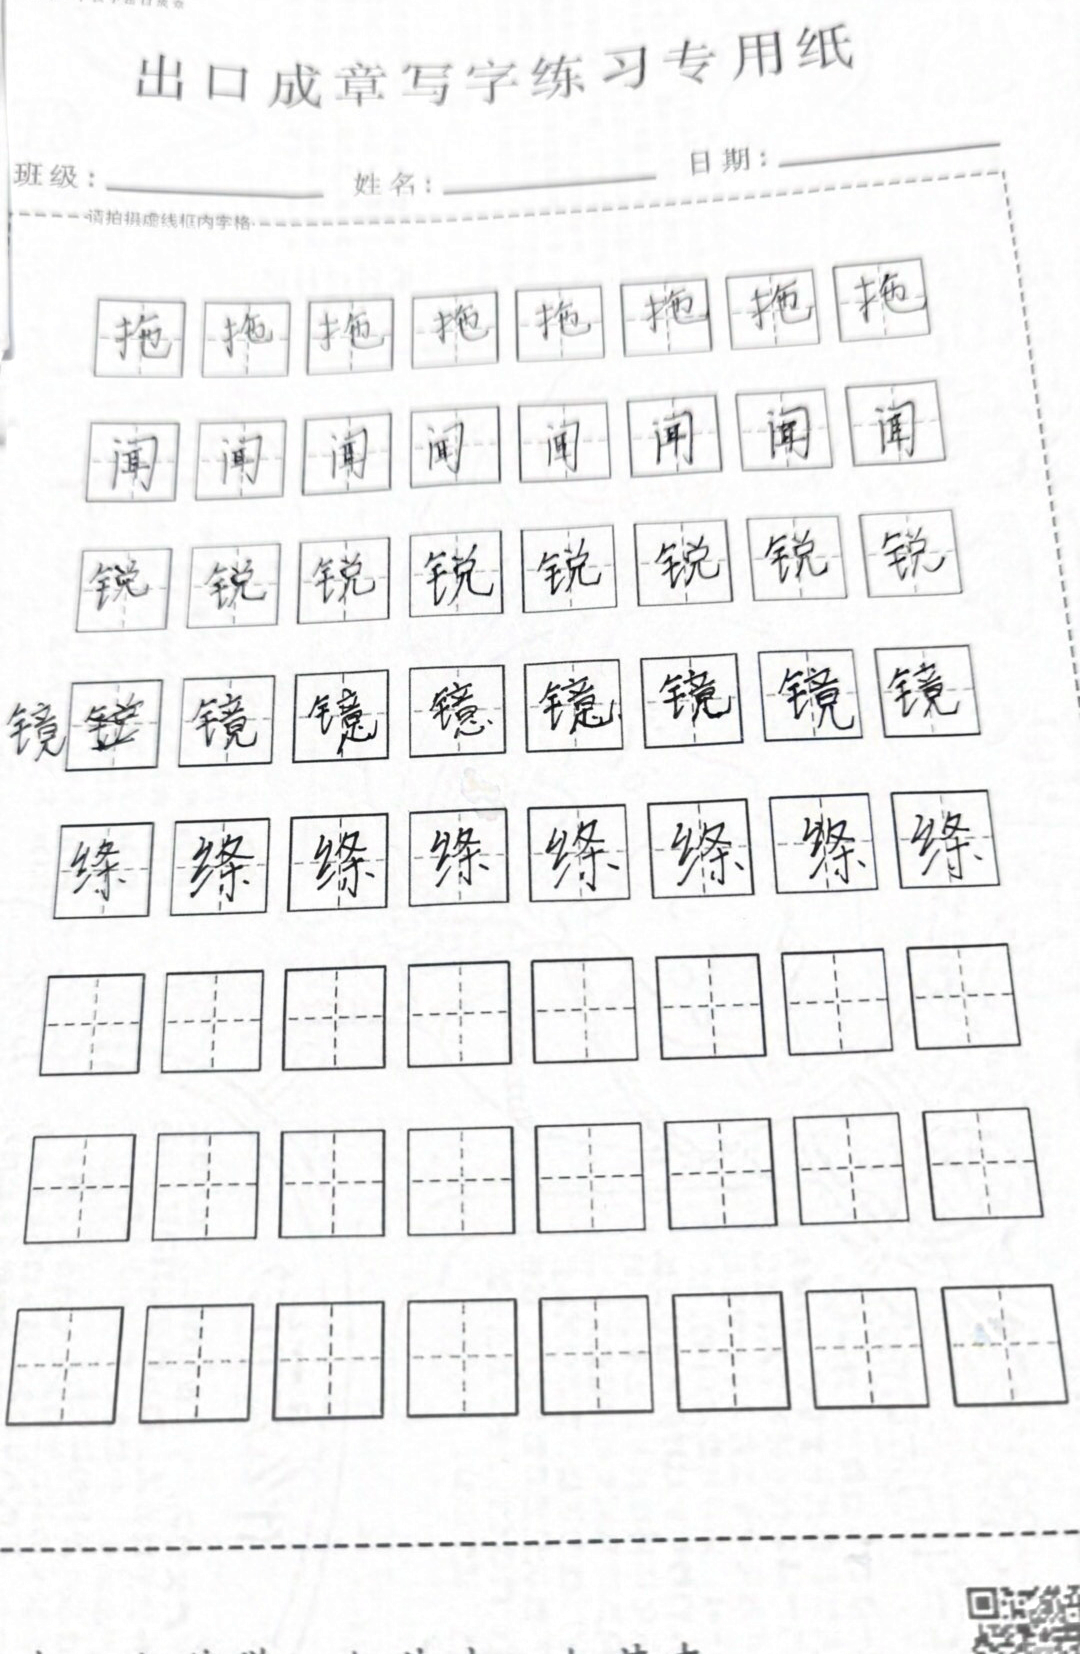 出口成章写字练习专用纸
班级: 姓名: 日期:
请拍摄虚线框内字格
拖 拖 拖 拖 拖 拖 拖 拖
闻 闻 闻 闻 闻 闻 闻 闻
锐 锐 锐 锐 锐 锐 锐 锐
镜 镜 镱 镱 镱 镜 镜 镜
绦 绦 绦 绦 绦 绦 绦 绦